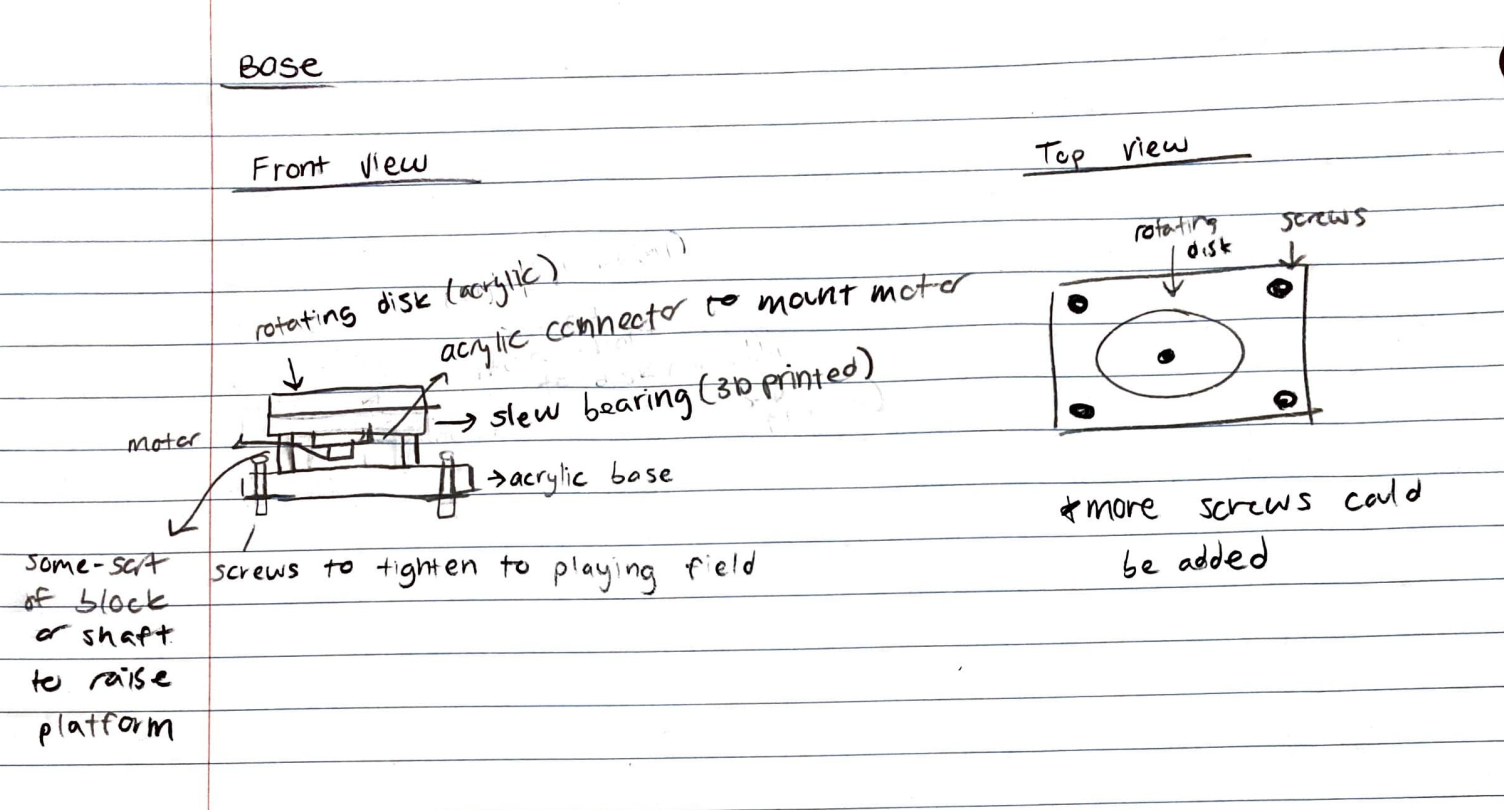 Base
Front view
Top view
rotating disk (acrylic)
acrylic connector to mount motor
slew bearing (3D printed)
motor
acrylic base
some-sort
of block
or shaft
to raise
platform
screws to tighten to playing field
rotating
disk
screws
*more screws could
be added